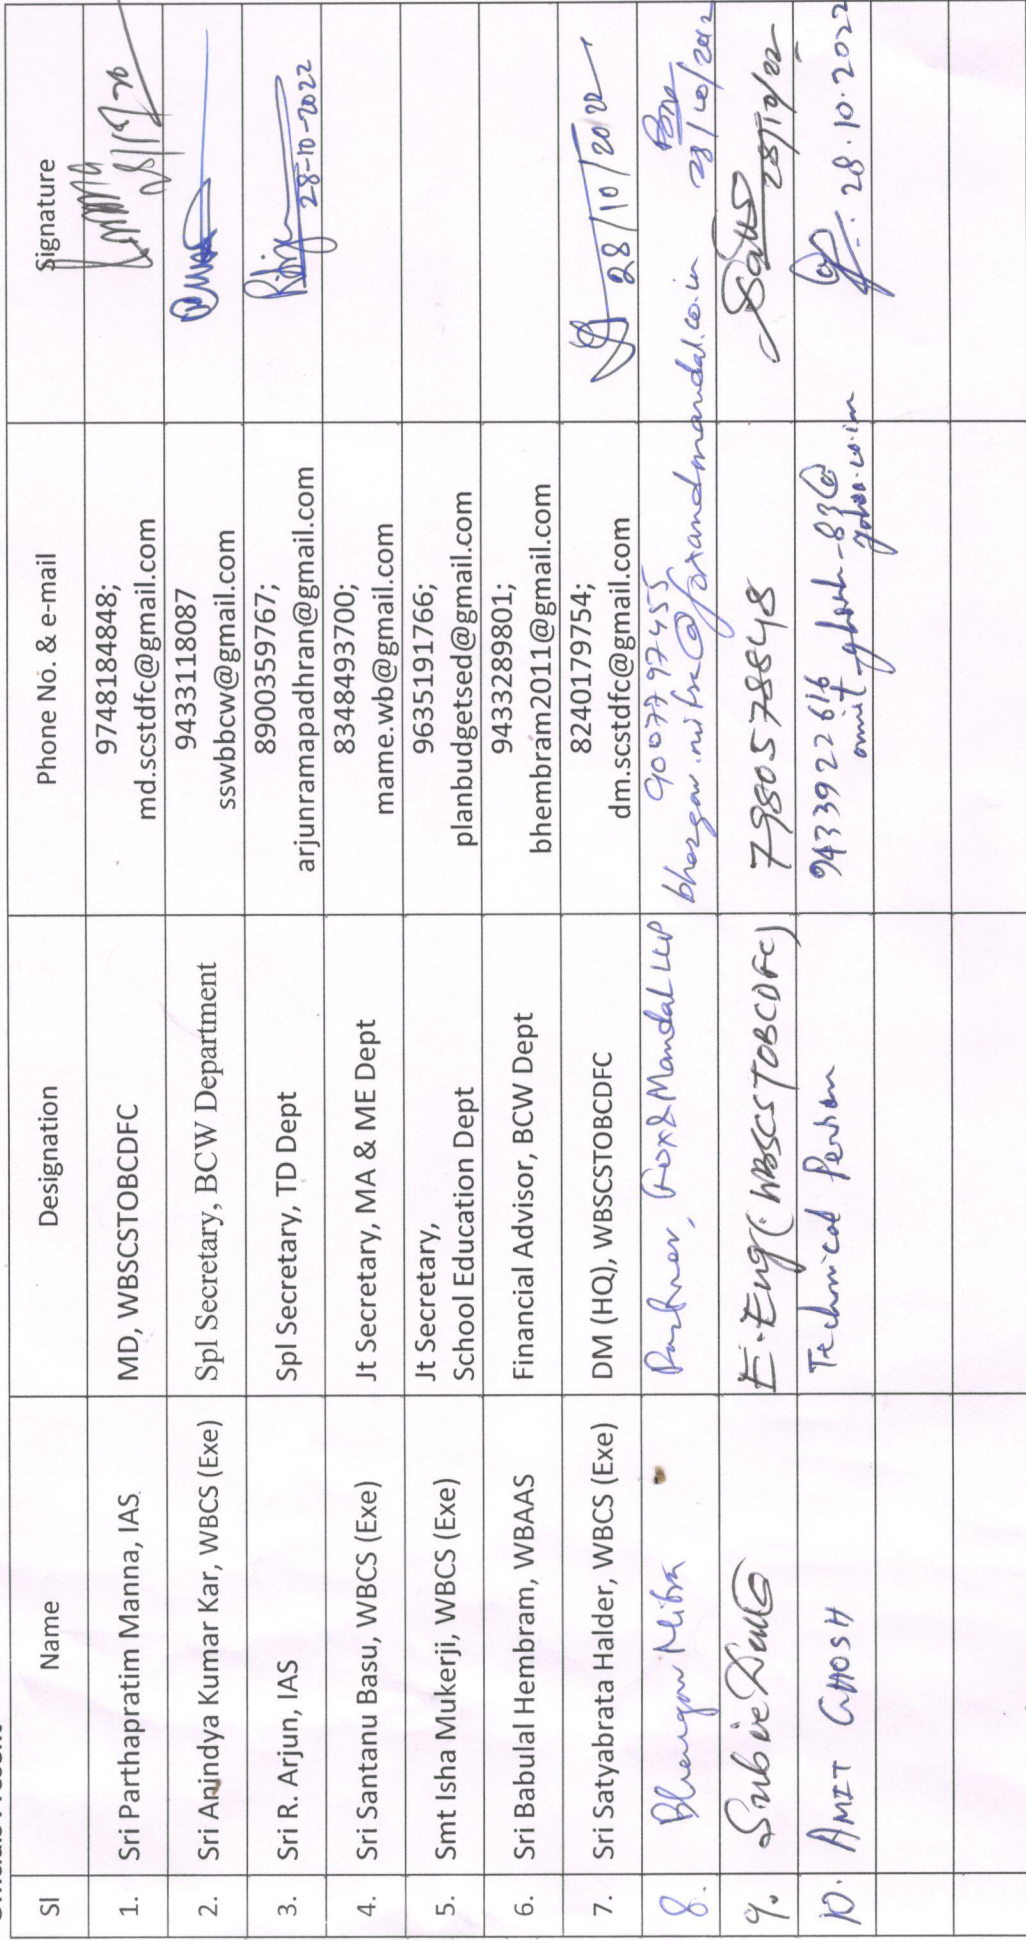 Sl Name Designation Phone No. & e-mail Signature
1. Sri Parthapratim Manna, IAS MD, WBSCSTOBCDFC 9748184848;
md.scstdfc@gmail.com
2. Sri Anindya Kumar Kar, WBCS (Exe) Spl Secretary, BCW Department 9433118087
sswbbcw@gmail.com
3. Sri R. Arjun, IAS Spl Secretary, TD Dept 8900359767;
arjunramapadhran@gmail.com
28-10-2022
4. Sri Santanu Basu, WBCS (Exe) Jt Secretary, MA & ME Dept 8348493700;
mame.wb@gmail.com
5. Smt Isha Mukerji, WBCS (Exe) Jt Secretary,
School Education Dept
9635191766;
planbudgetsed@gmail.com
6. Sri Babulal Hembram, WBAAS Financial Advisor, BCW Dept 9433289801;
bhembram2011@gmail.com
7. Sri Satyabrata Halder, WBCS (Exe) DM (HQ), WBSCSTOBCDFC 8240179754;
dm.scstdfc@gmail.com
28/10/2022
8. Bhargav Mitra Partner, Fox & Mandal LLP 9007797455
bhargav.mitra@foxandmandal.co.in
9. E.Eng (WBSCSTOBCDFC) 7980578848 28/10/22
10. AMIT GHOSH Technical Person 9433922616
amit_ghosh_83@
yahoo.co.in
28.10.2022